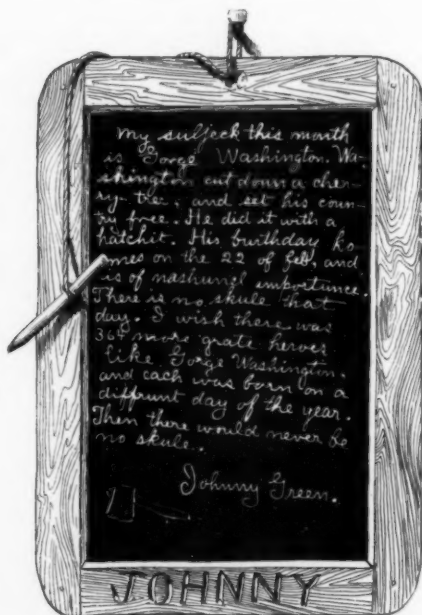 My subjeck this month
is Gorge Washington. Wa-
shington cut down a cher-
ry-tree, and set his coun-
try free. He did it with a
hatchit. His burthday ko-
mes on the 22 of feb, and
is of nashunil importunce.
There is no skule that
day. I wish there was
364 more grate heroes
like Gorge Washington,
and each was born on a
diffrunt day of the year.
Then there would never be
no skule.
Johnny Green.
JOHNNY